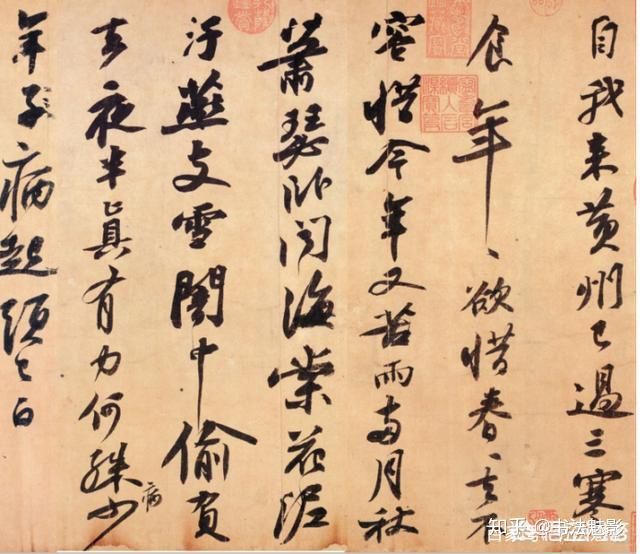 自我来黄州已過三寒
食年〻欲惜春〻去不
容惜今年又苦雨兩月秋
蕭瑟卧聞海棠花泥
汙燕支雪闇中偷負
去夜半真有力何殊少
病
年子病起頭已白
知乎 @书法魅影